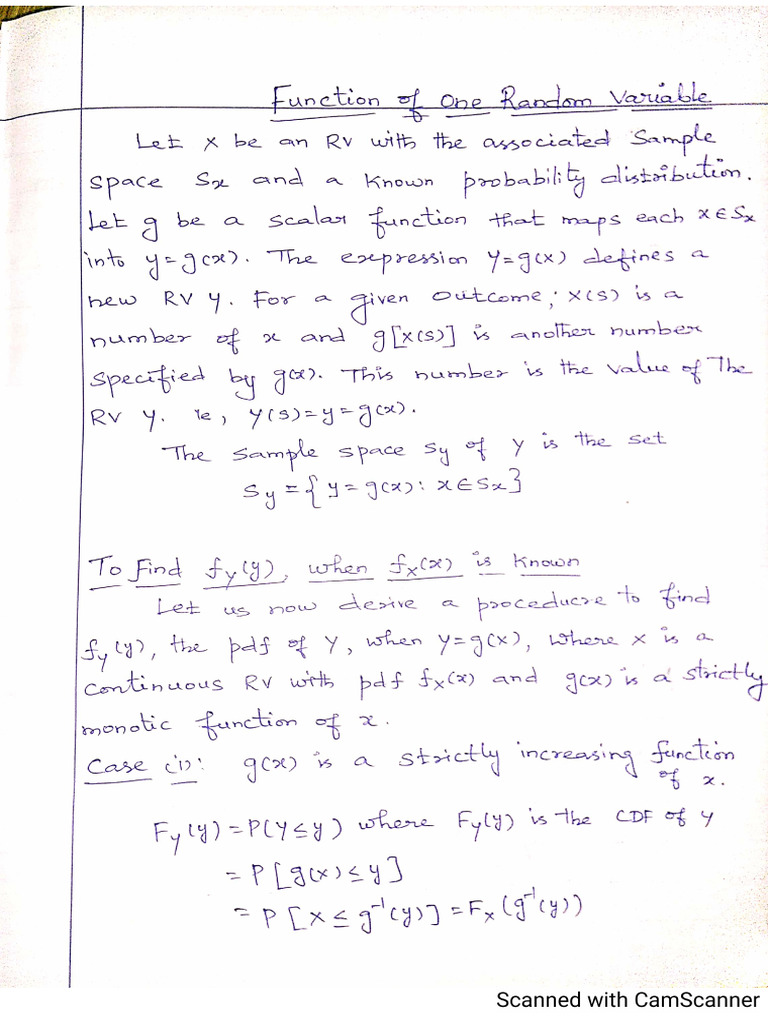 Function of One Random Variable
Let X be an RV with the associated Sample
space Sx and a known probability distribution.
Let g be a scalar function that maps each x∈Sx
into y=g(x). The expression Y=g(X) defines a
new RV Y. For a given outcome, X(s) is a
number of x and g[X(s)] is another number
specified by g(x). This number is the value of The
RV Y. ie, Y(s)=y=g(x).
The sample space Sy of Y is the set
Sy={y=g(x): x∈Sx}
To Find fy(y), when fx(x) is known
Let us now derive a proceducre to find
fy(y), the pdf of Y, when Y=g(X), where X is a
continuous RV with pdf fx(x) and g(x) is a strictly
monotic function of x.
Case (i): g(x) is a strictly increasing function
of x.
Fy(y)=P(Y≤y) where Fy(y) is the CDF of Y
=P[g(x)≤y]
=P[X≤g⁻¹(y)]=Fx(g⁻¹(y))
Scanned with CamScanner